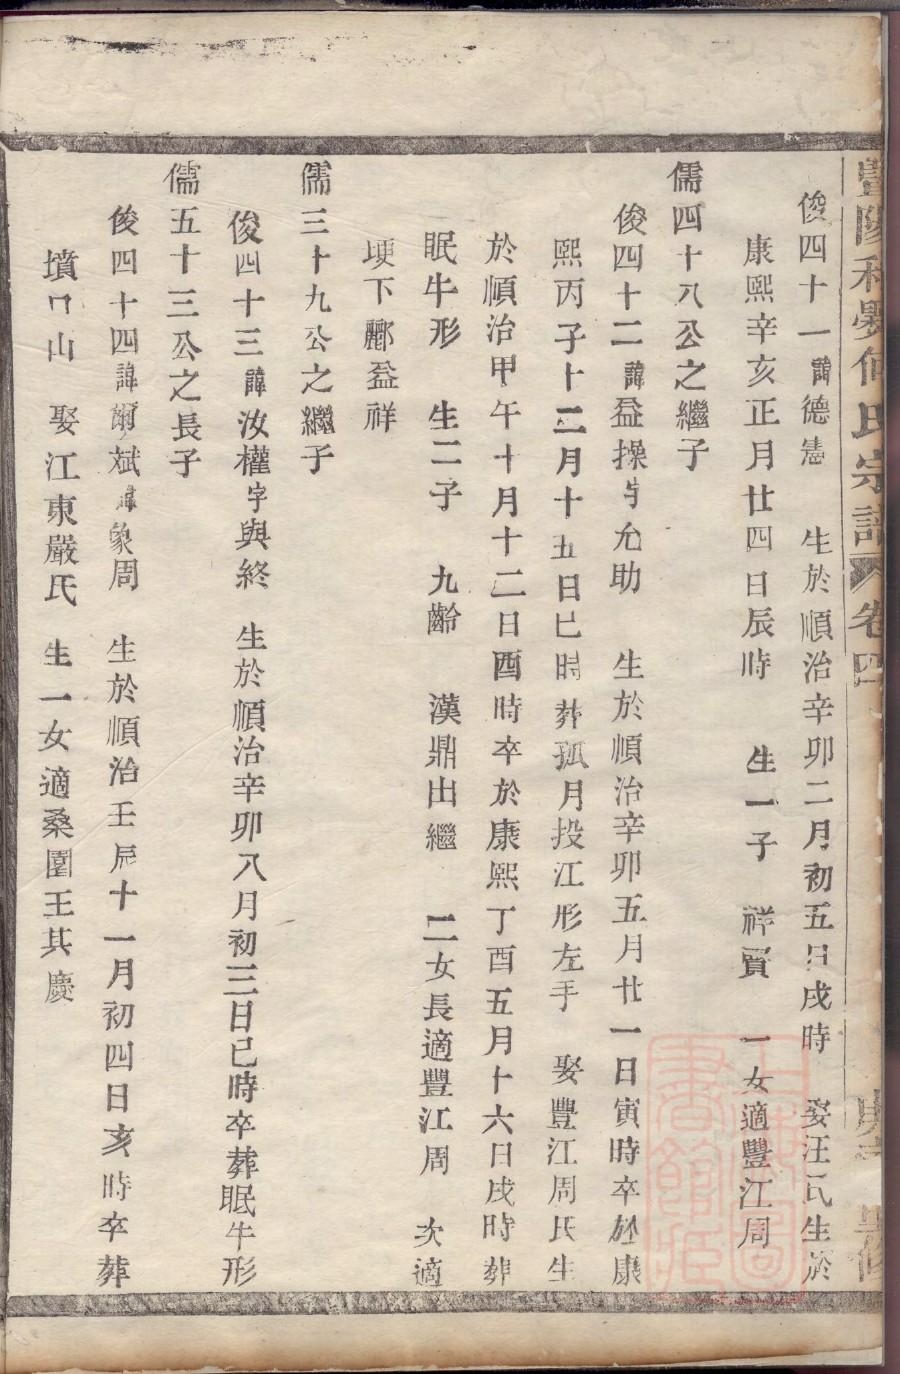 暨陽和晏何氏宗譜 卷四
俊四十一諱德憲 生於順治辛卯二月初五日戌時 娶汪氏生於
康熙辛亥正月廿四日辰時 生一子 祥賓 一女適豐江周
儒四十八公之繼子
俊四十二諱益操字允助 生於順治辛卯五月廿一日寅時卒於康
熙丙子十二月十五日巳時葬孤月投江形左手 娶豐江周氏生
於順治甲午十月十二日酉時卒於康熙丁酉五月十六日戌時葬
眠牛形 生二子 九齡 漢鼎出繼 二女長適豐江周 次適
埂下酈益祥
儒三十九公之繼子
俊四十三諱汝權字與終 生於順治辛卯八月初三日巳時卒葬眠牛形
儒五十三公之長子
俊四十四諱爾斌諱象周 生於順治壬辰十一月初四日亥時卒葬
墳口山 娶江東嚴氏 生一女適桑園王其慶